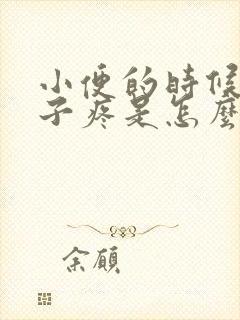 小便的時候
子疼是怎麼
余顧